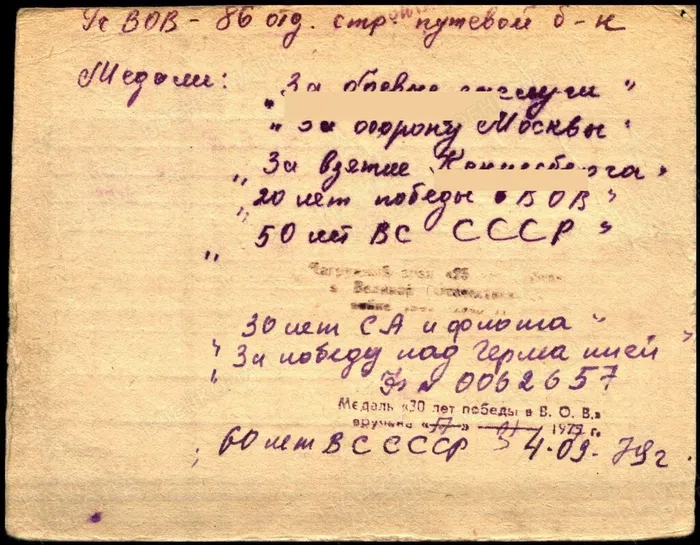 Уч ВОВ - 86 отд. стр. путевой б-н
Медали:
"За боевые заслуги"
"За оборону Москвы"
"За взятие Кенигсберга"
"20 лет победы в ВОВ"
"50 лет ВС СССР"
Нагрудный знак «25
в Великой
войне
30 лет СА и флота"
"За победу над Германией"
№ 0062657
Медаль «30 лет победы в В. О. В.»
вручена « » 197 г.
60 лет ВС СССР 4.09.79г.